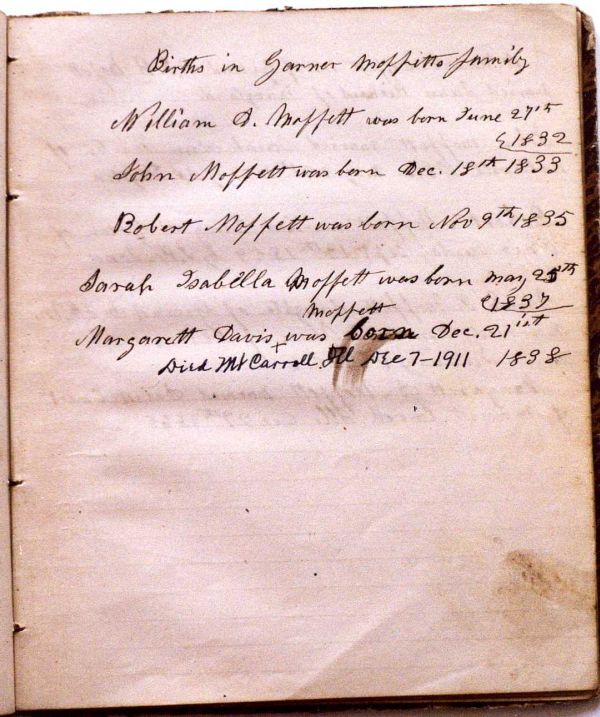 Births in Garner Moffitts family
William D. Moffett was born June 27th
1832
John Moffett was born Dec. 18th 1833
Robert Moffett was born Nov 9th 1835
Sarah Isabella Moffett was born May 25th
1837
Moffett
Margarett Davis was born Dec. 21st
Died Mt Carroll Ill Dec 7-1911 1838